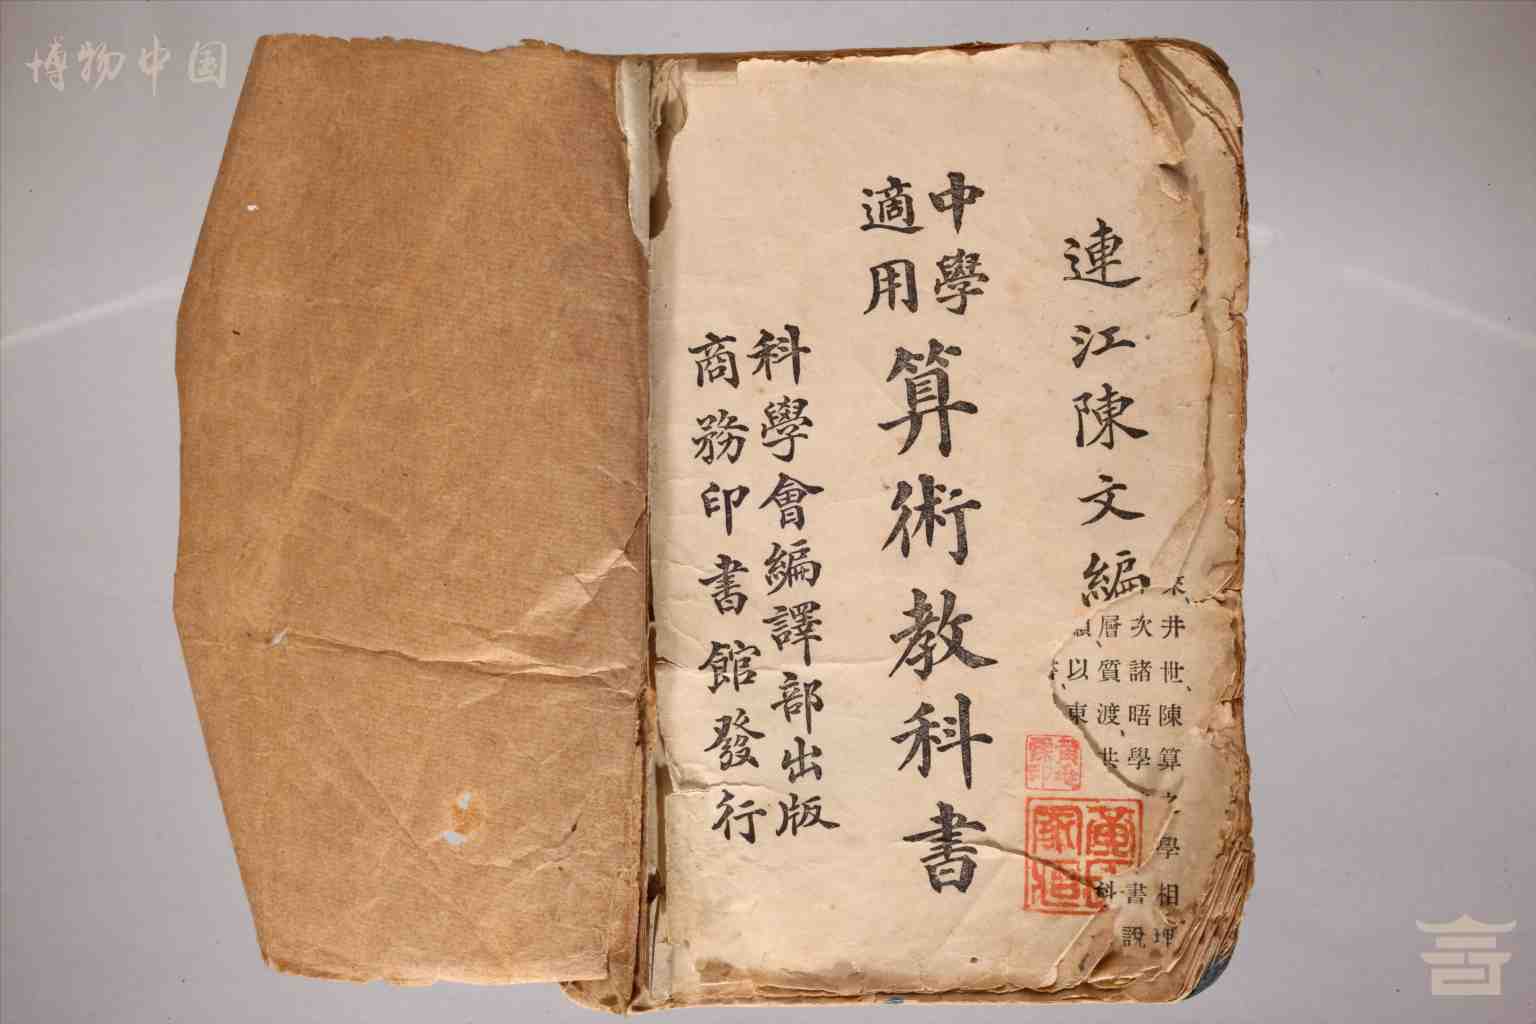 博物中国
連江陳文編
中學
適用
算術教科書
科學會編譯部出版
商務印書館發行
井世陳算
學相理
次諸晤學
書說
層質渡共
科
以東